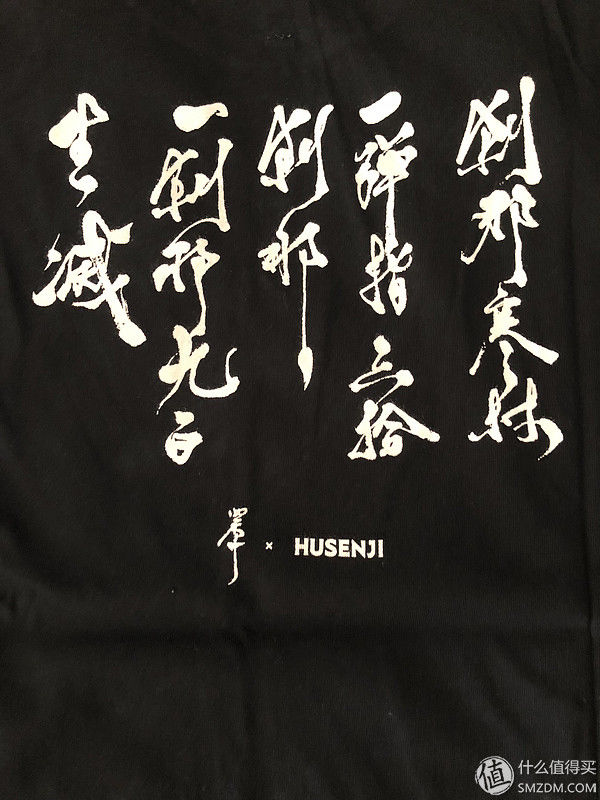 刹那寒林
一弹指三拾
刹那
一刹那九百
生滅
× HUSENJI
值 什么值得买
SMZDM.COM